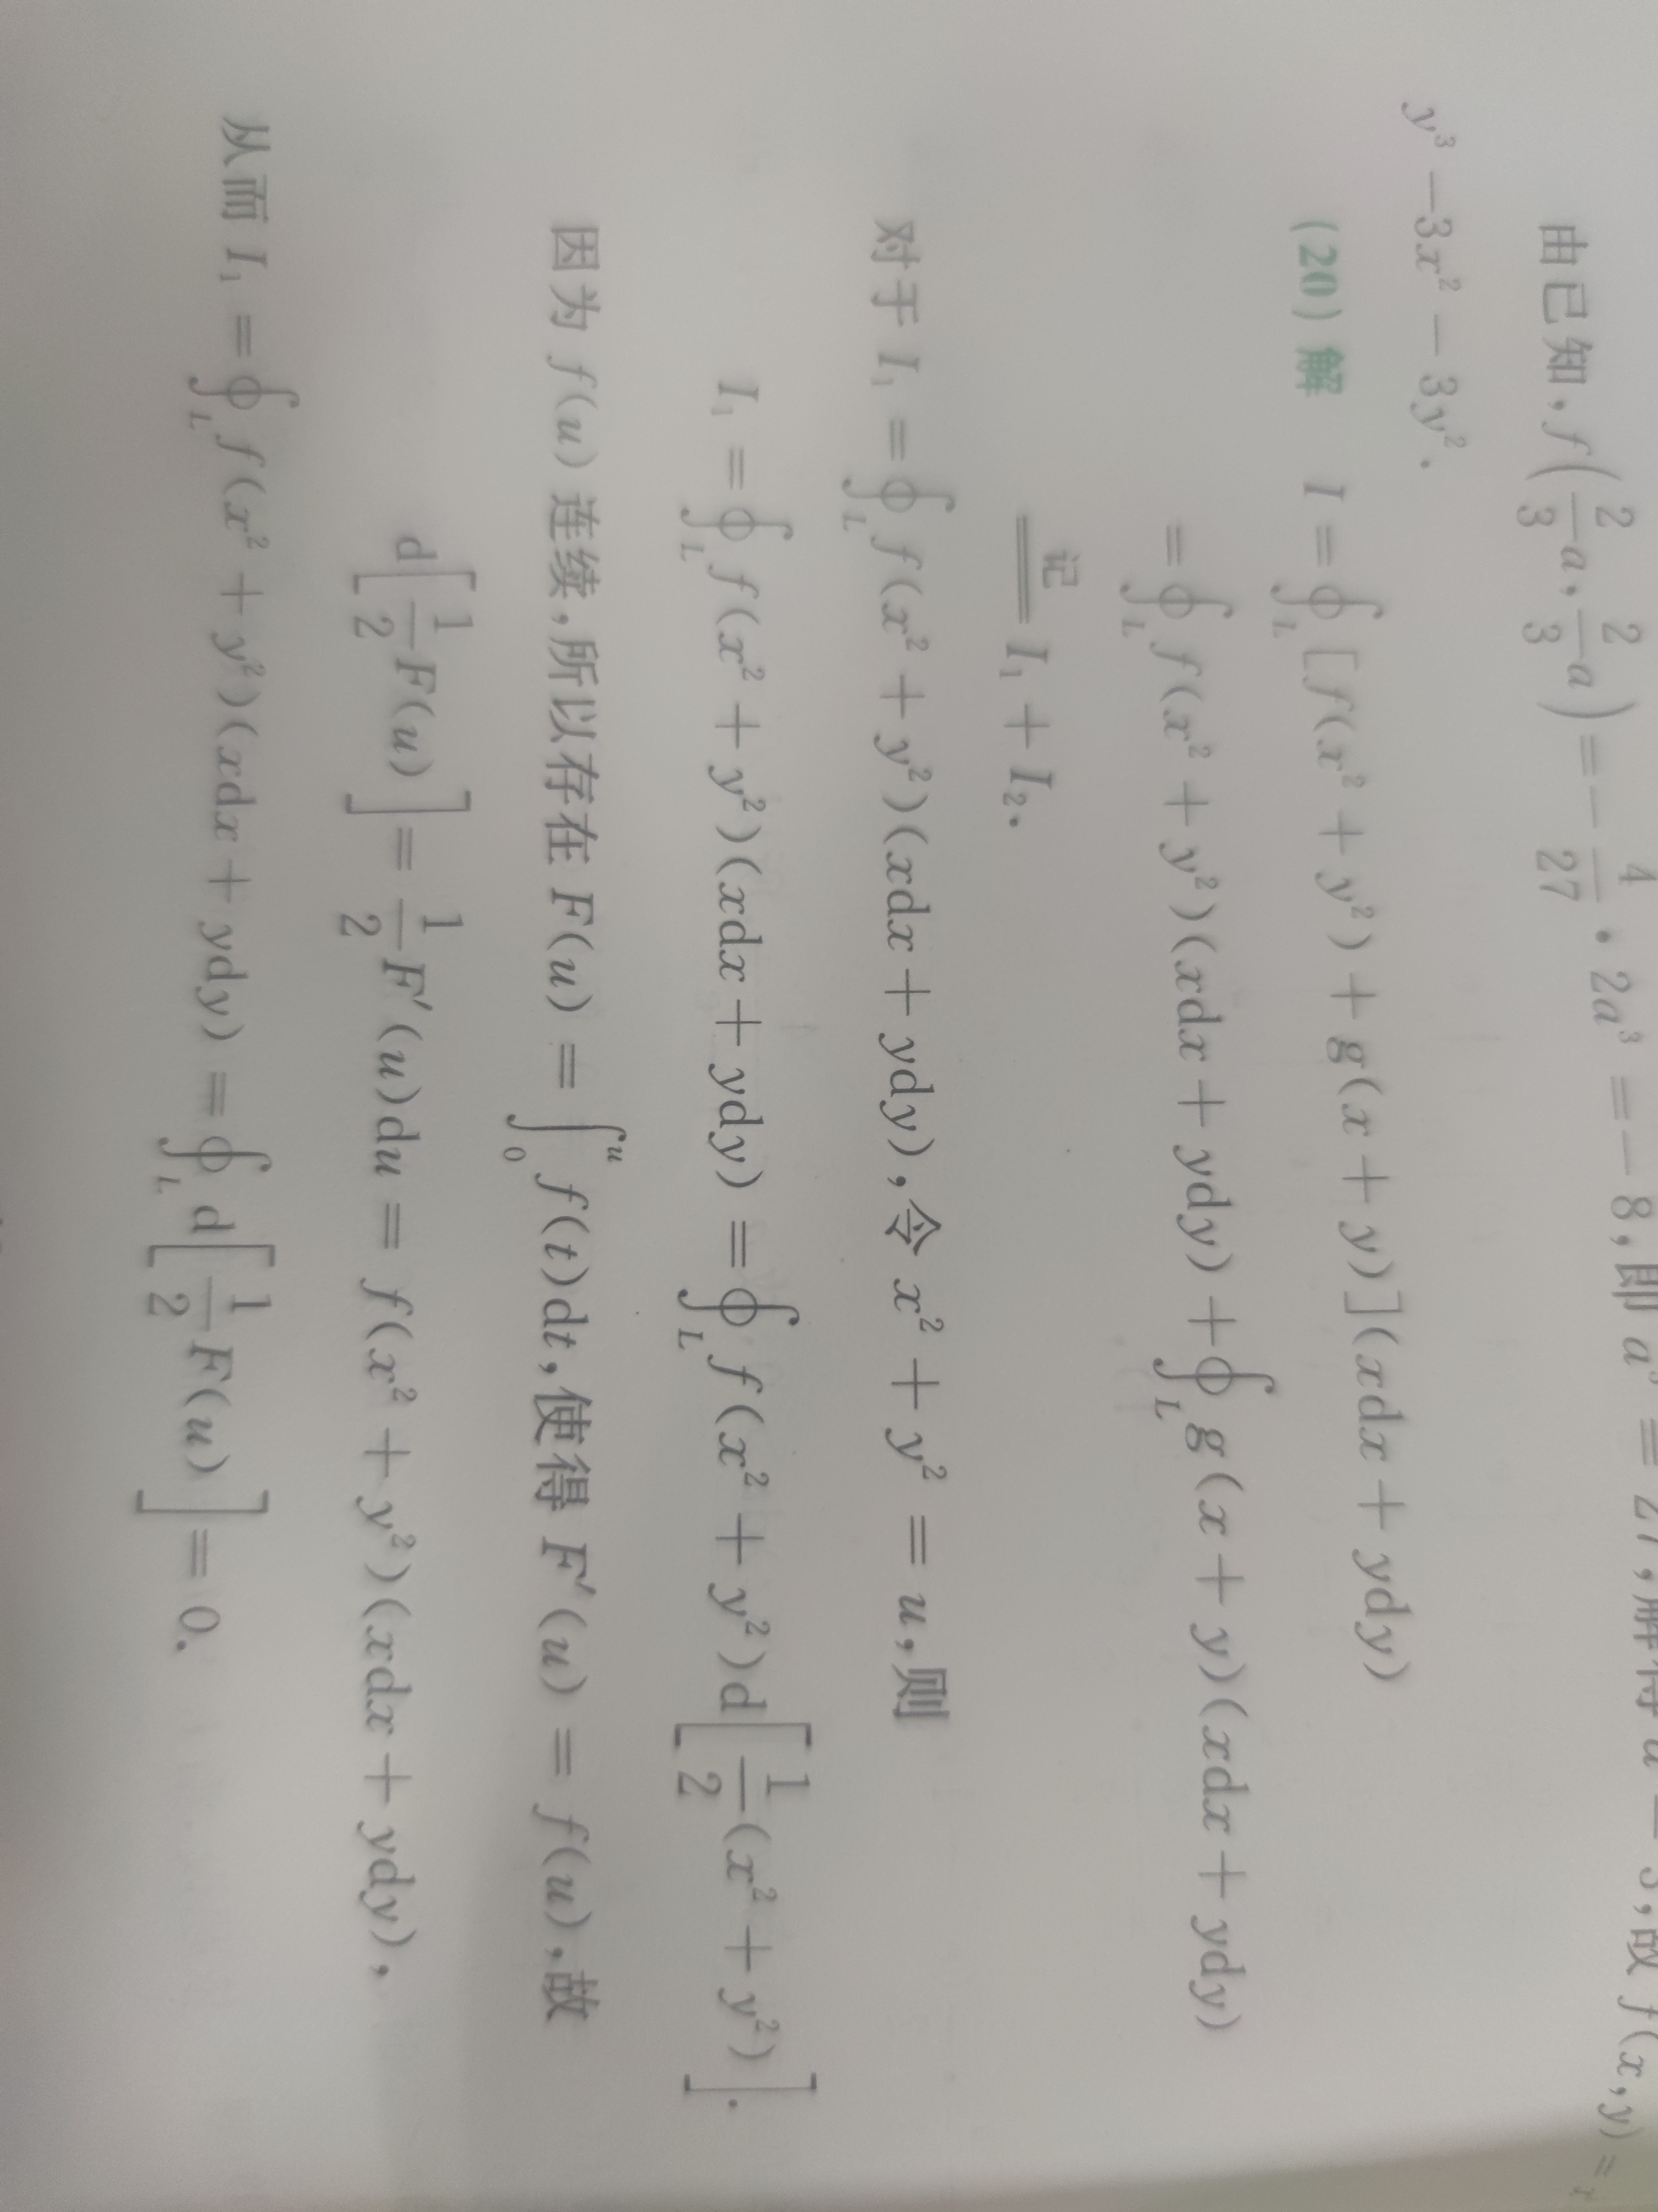 由已知,f(2/3 a, 2/3 a) = −4/27 · 2a³ = −8,即 a³ = 27,解得 a = 3,故 f(x,y) =
y³ −3x² − 3y².
(20) 解 I = ∮_L [f(x² + y²) + g(x + y)](xdx + ydy)
= ∮_L f(x² + y²)(xdx + ydy) + ∮_L g(x + y)(xdx + ydy)
记
═ I₁ + I₂.
对于 I₁ = ∮_L f(x² + y²)(xdx + ydy),令 x² + y² = u,则
I₁ = ∮_L f(x² + y²)(xdx + ydy) = ∮_L f(x² + y²)d[1/2(x² + y²)].
因为 f(u) 连续,所以存在 F(u) = ∫₀ᵘ f(t)dt,使得 F′(u) = f(u),故
d[1/2 F(u)] = 1/2 F′(u)du = f(x² + y²)(xdx + ydy),
从而 I₁ = ∮_L f(x² + y²)(xdx + ydy) = ∮_L d[1/2 F(u)] = 0.